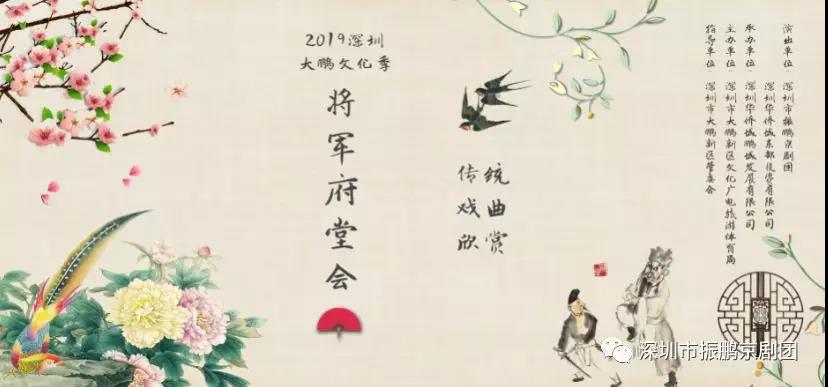 2019深圳
大鹏文化季
将军府堂会
传统
戏曲
欣赏
指导单位：深圳市大鹏新区管委会
主办单位：深圳市大鹏新区文化广电旅游体育局
承办单位：深圳华侨城鹏城发展有限公司
深圳华侨城东部投资有限公司
演出单位：深圳市振鹏京剧团
深圳市振鹏京剧团